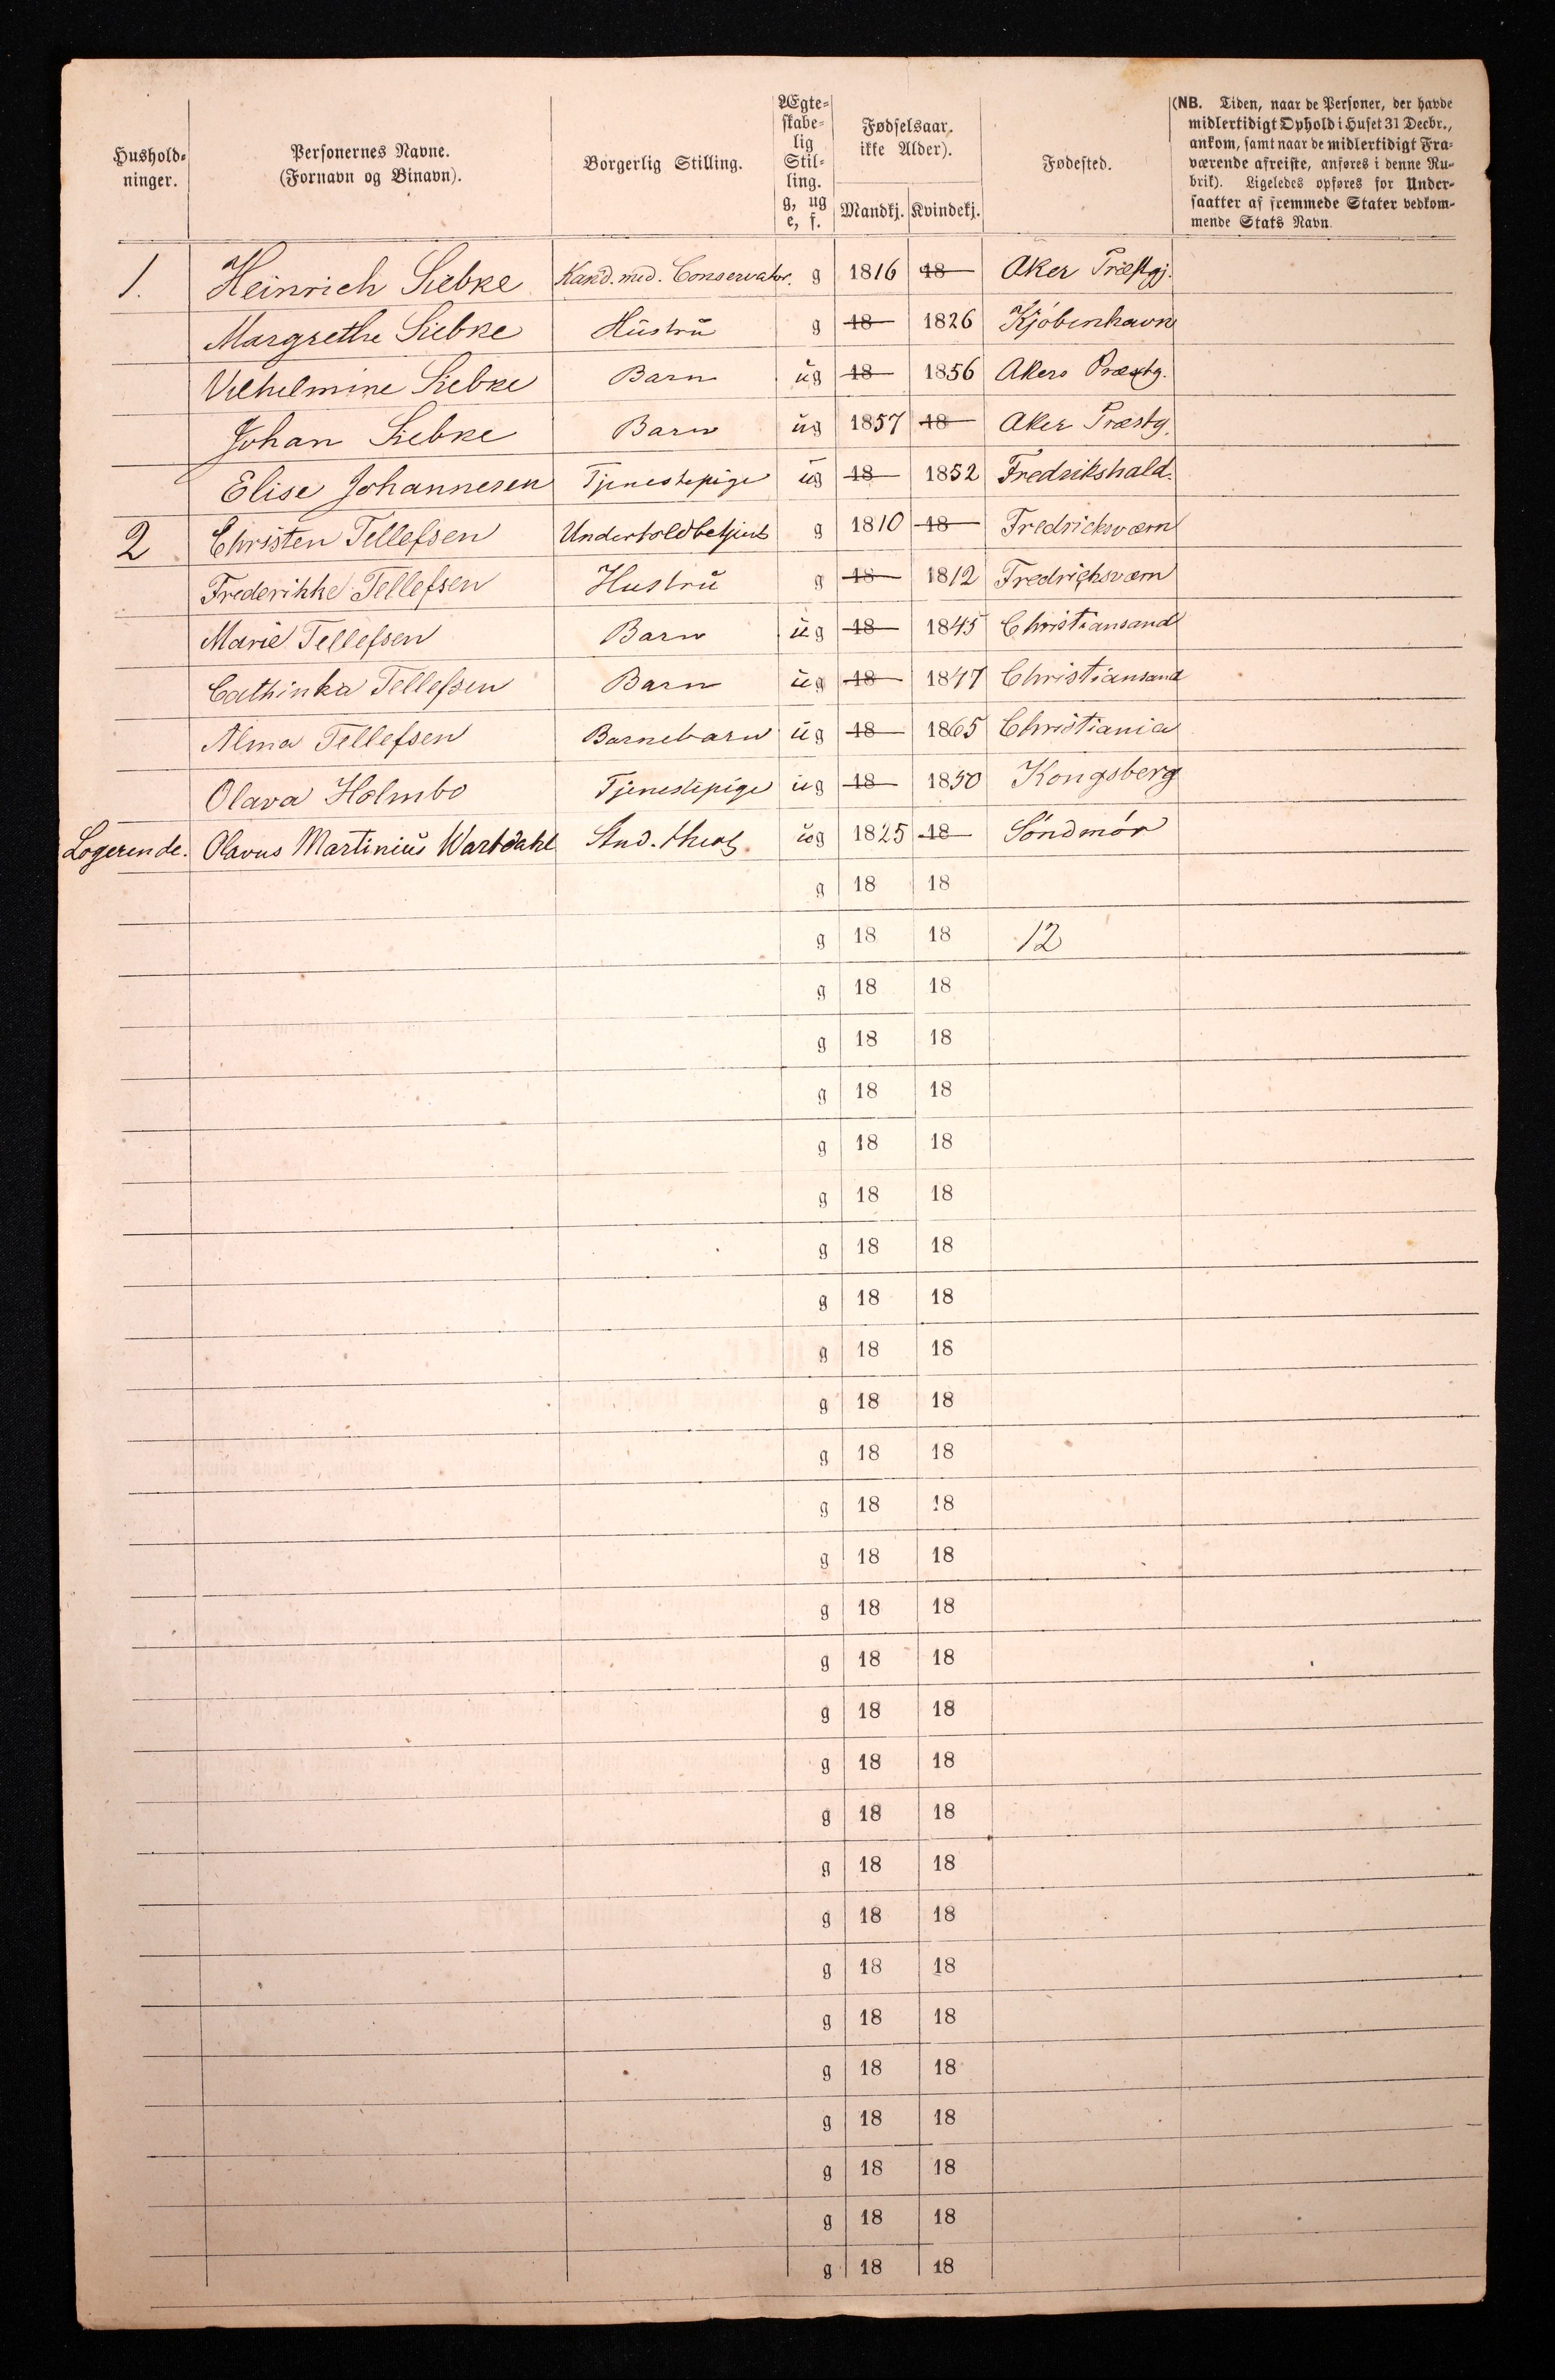 Hushold-
ninger.
Personernes Navne.
(Fornavn og Binavn).
Borgerlig Stilling.
Ægte-
skabe-
lig
Stil-
ling.
g, ug
e, f.
Fødselsaar.
ikke Alder).
Mandkj. Kvindekj.
Fødested.
(NB. Tiden, naar de Personer, der havde
midlertidigt Ophold i Huset 31 Decbr.,
ankom, samt naar de midlertidigt Fra-
værende afreiste, anføres i denne Ru-
brik). Ligeledes opføres for Under-
saatter af fremmede Stater vedkom-
mende Stats Navn.
1. Heinrich Siebke Kand. med. Conservator. g 1816 18 Aker Præstgj.
Margrethe Siebke Hustru g 18 1826 Kjöbenhavn
Vilhelmine Siebke Barn ug 18 1856 Akers Præstg.
Johan Siebke Barn ug 1857 18 Aker Præstg.
Elise Johannesen Tjenestepige ug 18 1852 Fredrikshald.
2 Christen Tellefsen Undertoldbetjent g 1810 18 Fredricksværn
Frederikke Tellefsen Hustru g 18 1812 Fredriksværn
Marie Tellefsen Barn ug 18 1845 Christiansand
Cathinka Tellefsen Barn ug 18 1847 Christiansand
Alma Tellefsen Barnebarn ug 18 1865 Christiania
Olava Holmbo Tjenestepige ug 18 1850 Kongsberg
Logerende. Olavus Martinius Wartdahl Stud. theol. ug 1825 18 Söndmör
g 18 18
g 18 18 12
g 18 18
g 18 18
g 18 18
g 18 18
g 18 18
g 18 18
g 18 18
g 18 18
g 18 18
g 18 18
g 18 18
g 18 18
g 18 18
g 18 18
g 18 18
g 18 18
g 18 18
g 18 18
g 18 18
g 18 18
g 18 18
g 18 18
g 18 18
g 18 18
g 18 18
g 18 18